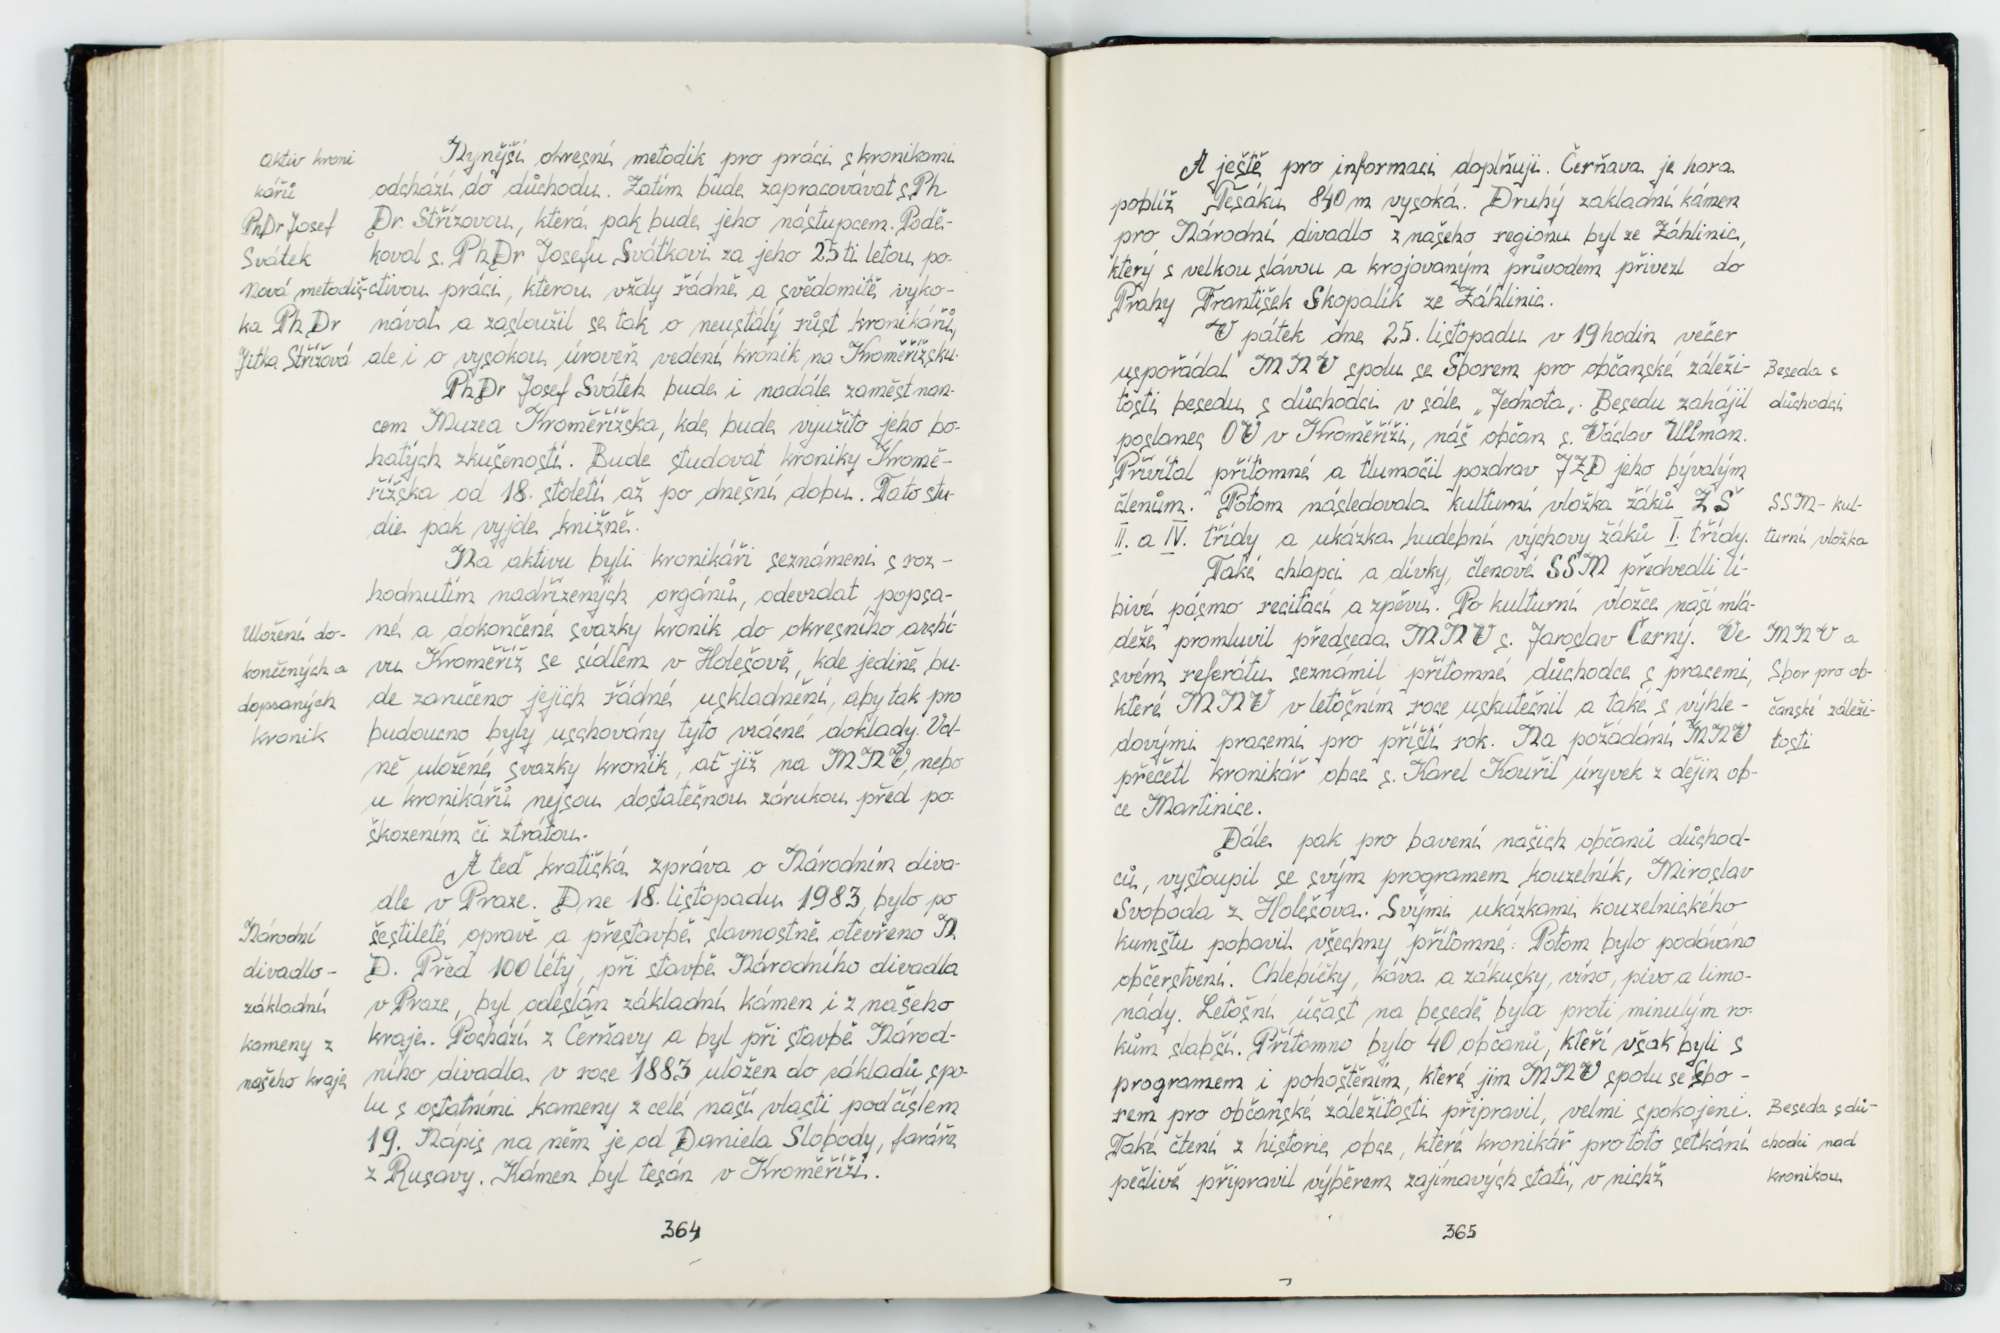 aktiv kroni
kářů
PhDr Josef
Svátek
Nová metodič-
ka PhDr
Jitka Střížová
Nynější okresní metodik pro práci s kronikami
odchází do důchodu. Zatím bude zapracovávat s. Ph
Dr. Střížovou, která pak bude jeho nástupcem. Podě-
koval s. PhDr Josefu Svátkovi za jeho 25ti letou po-
ctivou práci, kterou vždy řádně a svědomitě vyko-
nával a zasloužil se tak o neustálý růst kronikářů,
ale i o vysokou úroveň vedení kronik na Kroměřížsku.
PhDr Josef Svátek bude i nadále zaměstnan-
cem Muzea Kroměřížska, kde bude využito jeho bo-
hatých zkušeností. Bude studovat kroniky Kromě-
řížska od 18. století až po dnešní dobu. Tato stu-
die pak vyjde knižně.
Na aktivu byli kronikáři seznámeni s roz-
hodnutím nadřízených orgánů, odevzdat popsa-
né a dokončené svazky kronik do okresního archi
vu Kroměříž se sídlem v Holešově, kde jedině bu-
de zaručeno jejich řádné uskladnění, aby tak pro
budoucno byly uschovány tyto vzácné doklady. Vol-
ně uložené svazky kronik, ať již na MNV, nebo
u kronikářů nejsou dostatečnou zárukou před po-
škozením či ztrátou.
Uložení do-
končených a
dopsaných
kronik
A teď kratičká zpráva o Národním diva-
dle v Praze. Dne 18. listopadu 1983, bylo po
šestileté opravě a přestavbě slavnostně otevřeno N
D. Před 100 léty, při stavbě Národního divadla
v Praze, byl odeslán základní kámen i z našeho
kraje. Pochází z Čerňavy a byl při stavbě Národ-
ního divadla v roce 1883 uložen do základů spo-
lu s ostatními kameny z celé naší vlasti pod číslem
19. Nápis na něm je od Daniela Slobody, faráře
z Rusavy. Kámen byl tesán v Kroměříži.
Národní
divadlo-
základní
kameny z
našeho kraje
364
A ještě pro informaci doplňuji. Čerňava je hora
poblíž Tesáku 840 m vysoká. Druhý zakladní kámen
pro Národní divadlo z našeho regionu byl ze Záhlinic,
který s velkou slávou a krojovaným průvodem přivezl do
Prahy František Skopalík ze Záhlinic.
V pátek dne 25. listopadu v 19 hodin večer
uspořádal MNV spolu se Sborem pro občanské záleži-
tosti besedu s důchodci v sále „Jednota„. Besedu zahájil
poslanec OV v Kroměříži, náš občan s. Václav Ullman.
Přivítal přítomné a tlumočil pozdrav JZD jeho bývalým
členům. Potom následovala kulturní vložka žáků ZŠ
II. a IV. třídy a ukázka hudební výchovy žáků I. třídy.
Také chlapci a dívky, členové SSM předvedli lí-
bivé pásmo recitací a zpěvu. Po kulturní vložce naší mlá-
deže promluvil předseda MNV s. Jaroslav Černý. Ve
svém referátu seznámil přítomné důchodce s pracemi,
které MNV v letošním roce uskutečnil a také s výhle-
dovými pracemi pro příští rok. Na požádání MNV
přečetl kronikář obce s. Karel Kouřil úryvek z dějin ob-
ce Martinice.
Beseda s
důchodci
SSM-kul-
turní vložka
MNV a
Sbor pro ob-
čanské záleži-
tosti
Dále pak pro bavení našich občanů důchod-
ců, vystoupil se svým programem kouzelník, Miroslav
Svoboda z Holešova. Svými ukázkami kouzelnického
kumštu pobavil všechny přítomné. Potom bylo podáváno
občerstvení. Chlebíčky, káva a zákusky, víno, pivo a limo-
nády. Letošní účast na besedě byla proti minulým ro-
kům slabší. Přítomno bylo 40 občanů, kteří však byli s
programem i pohoštěním, které jim MNV spolu se Sbo-
rem pro občanské záležitosti připravil, velmi spokojeni.
Také čtení z historie obce, které kronikář pro toto setkání
pečlivě připravil výběrem zajímavých statí, v nichž
Beseda s dů-
chodci nad
kronikou
365